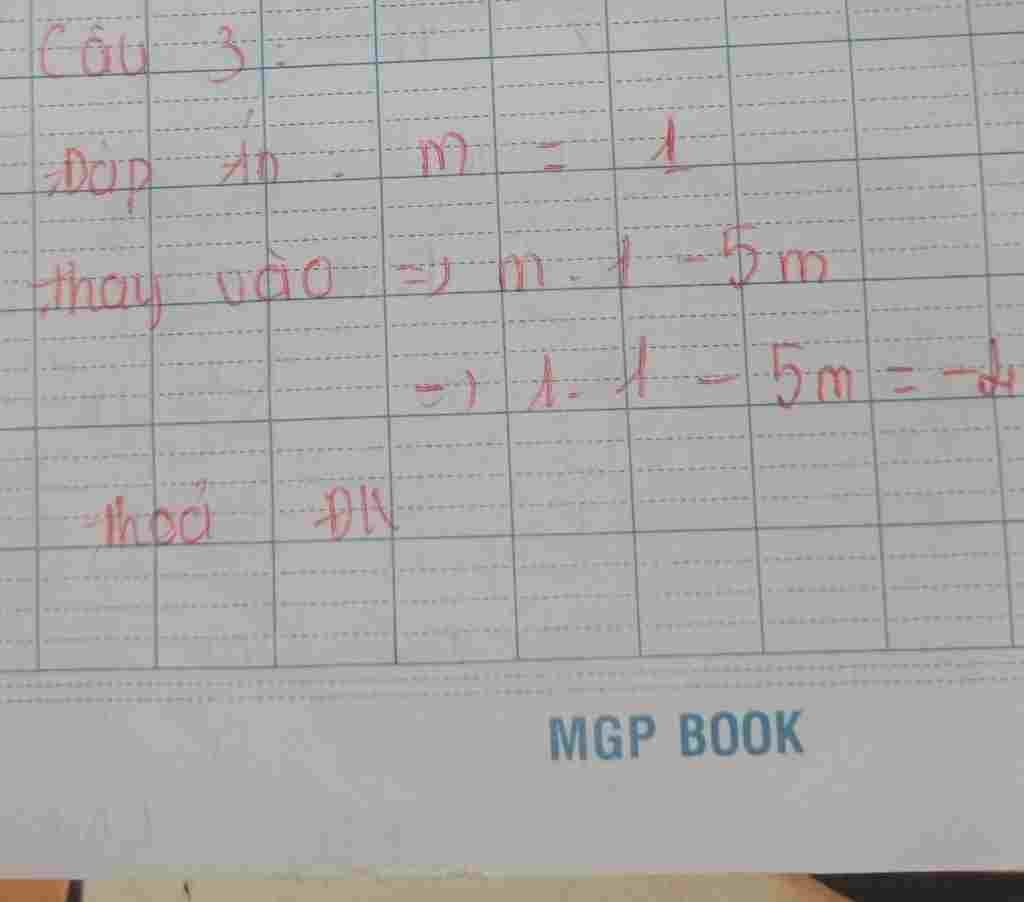 Câu 3:
Đáp án: m = 1
thay vào => m. 1 - 5m
=> 1. 1 - 5m = -4
thoả ĐK
MGP BOOK